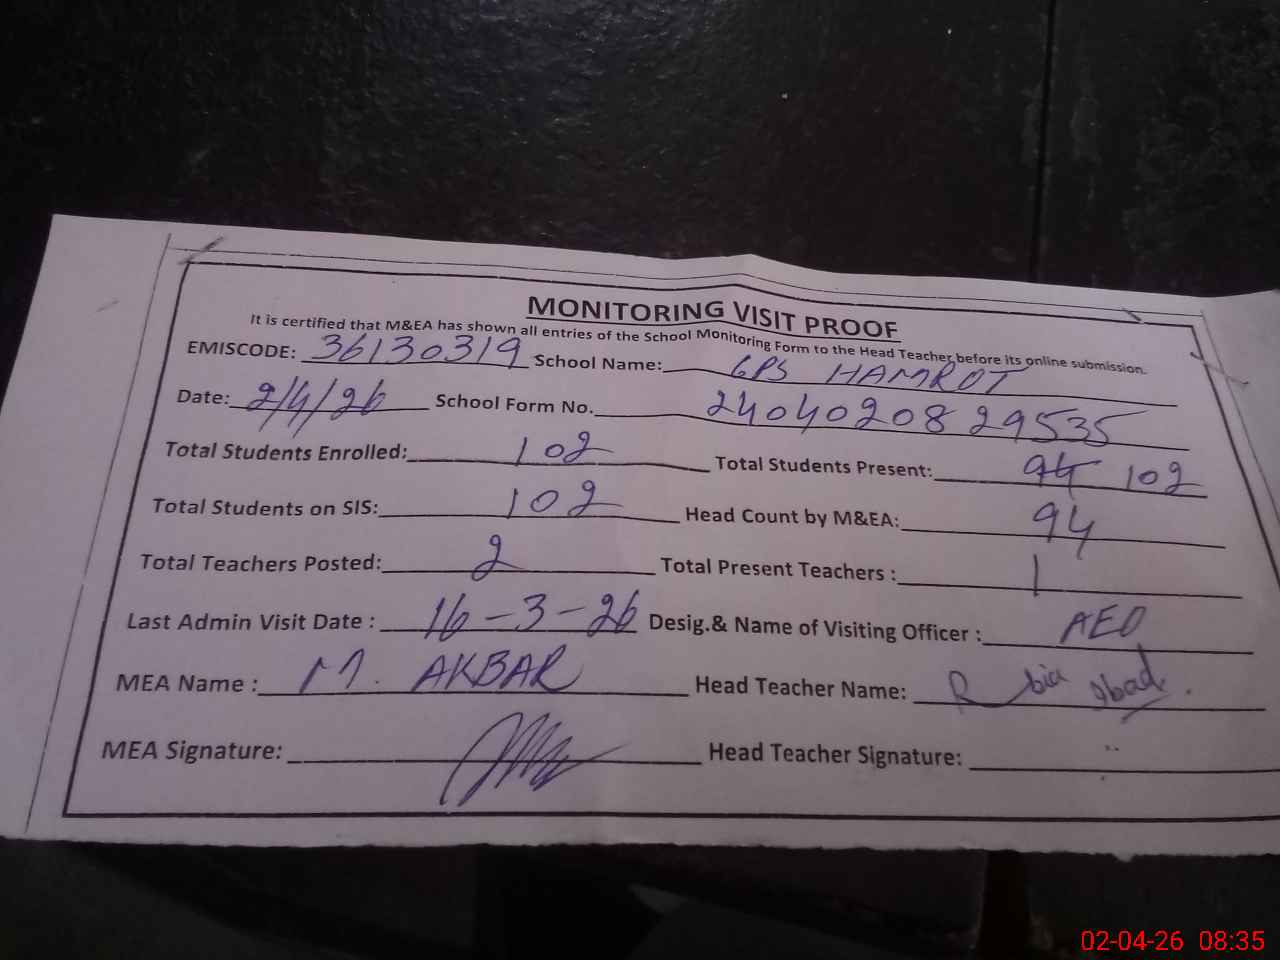 MONITORING VISIT PROOF
It is certified that M&EA has shown all entries of the School Monitoring Form to the Head Teacher before its online submission.
EMISCODE: 36130319 School Name: GPS HAMROT
Date: 2/4/26 School Form No. 2404020829535
Total Students Enrolled: 102 Total Students Present: 94 102
Total Students on SIS: 102 Head Count by M&EA: 94
Total Teachers Posted: 2 Total Present Teachers : 1
Last Admin Visit Date : 16-3-26 Desig.& Name of Visiting Officer : AEO
MEA Name : M. AKBAR Head Teacher Name:
MEA Signature: Head Teacher Signature:
02-04-26 08:35